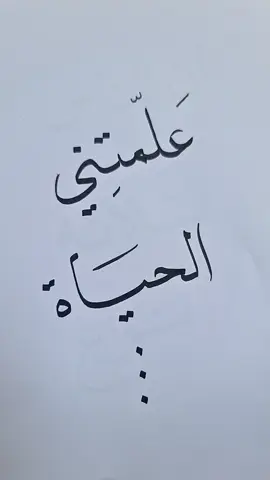 عَلّمتِني
الحيَاة
...